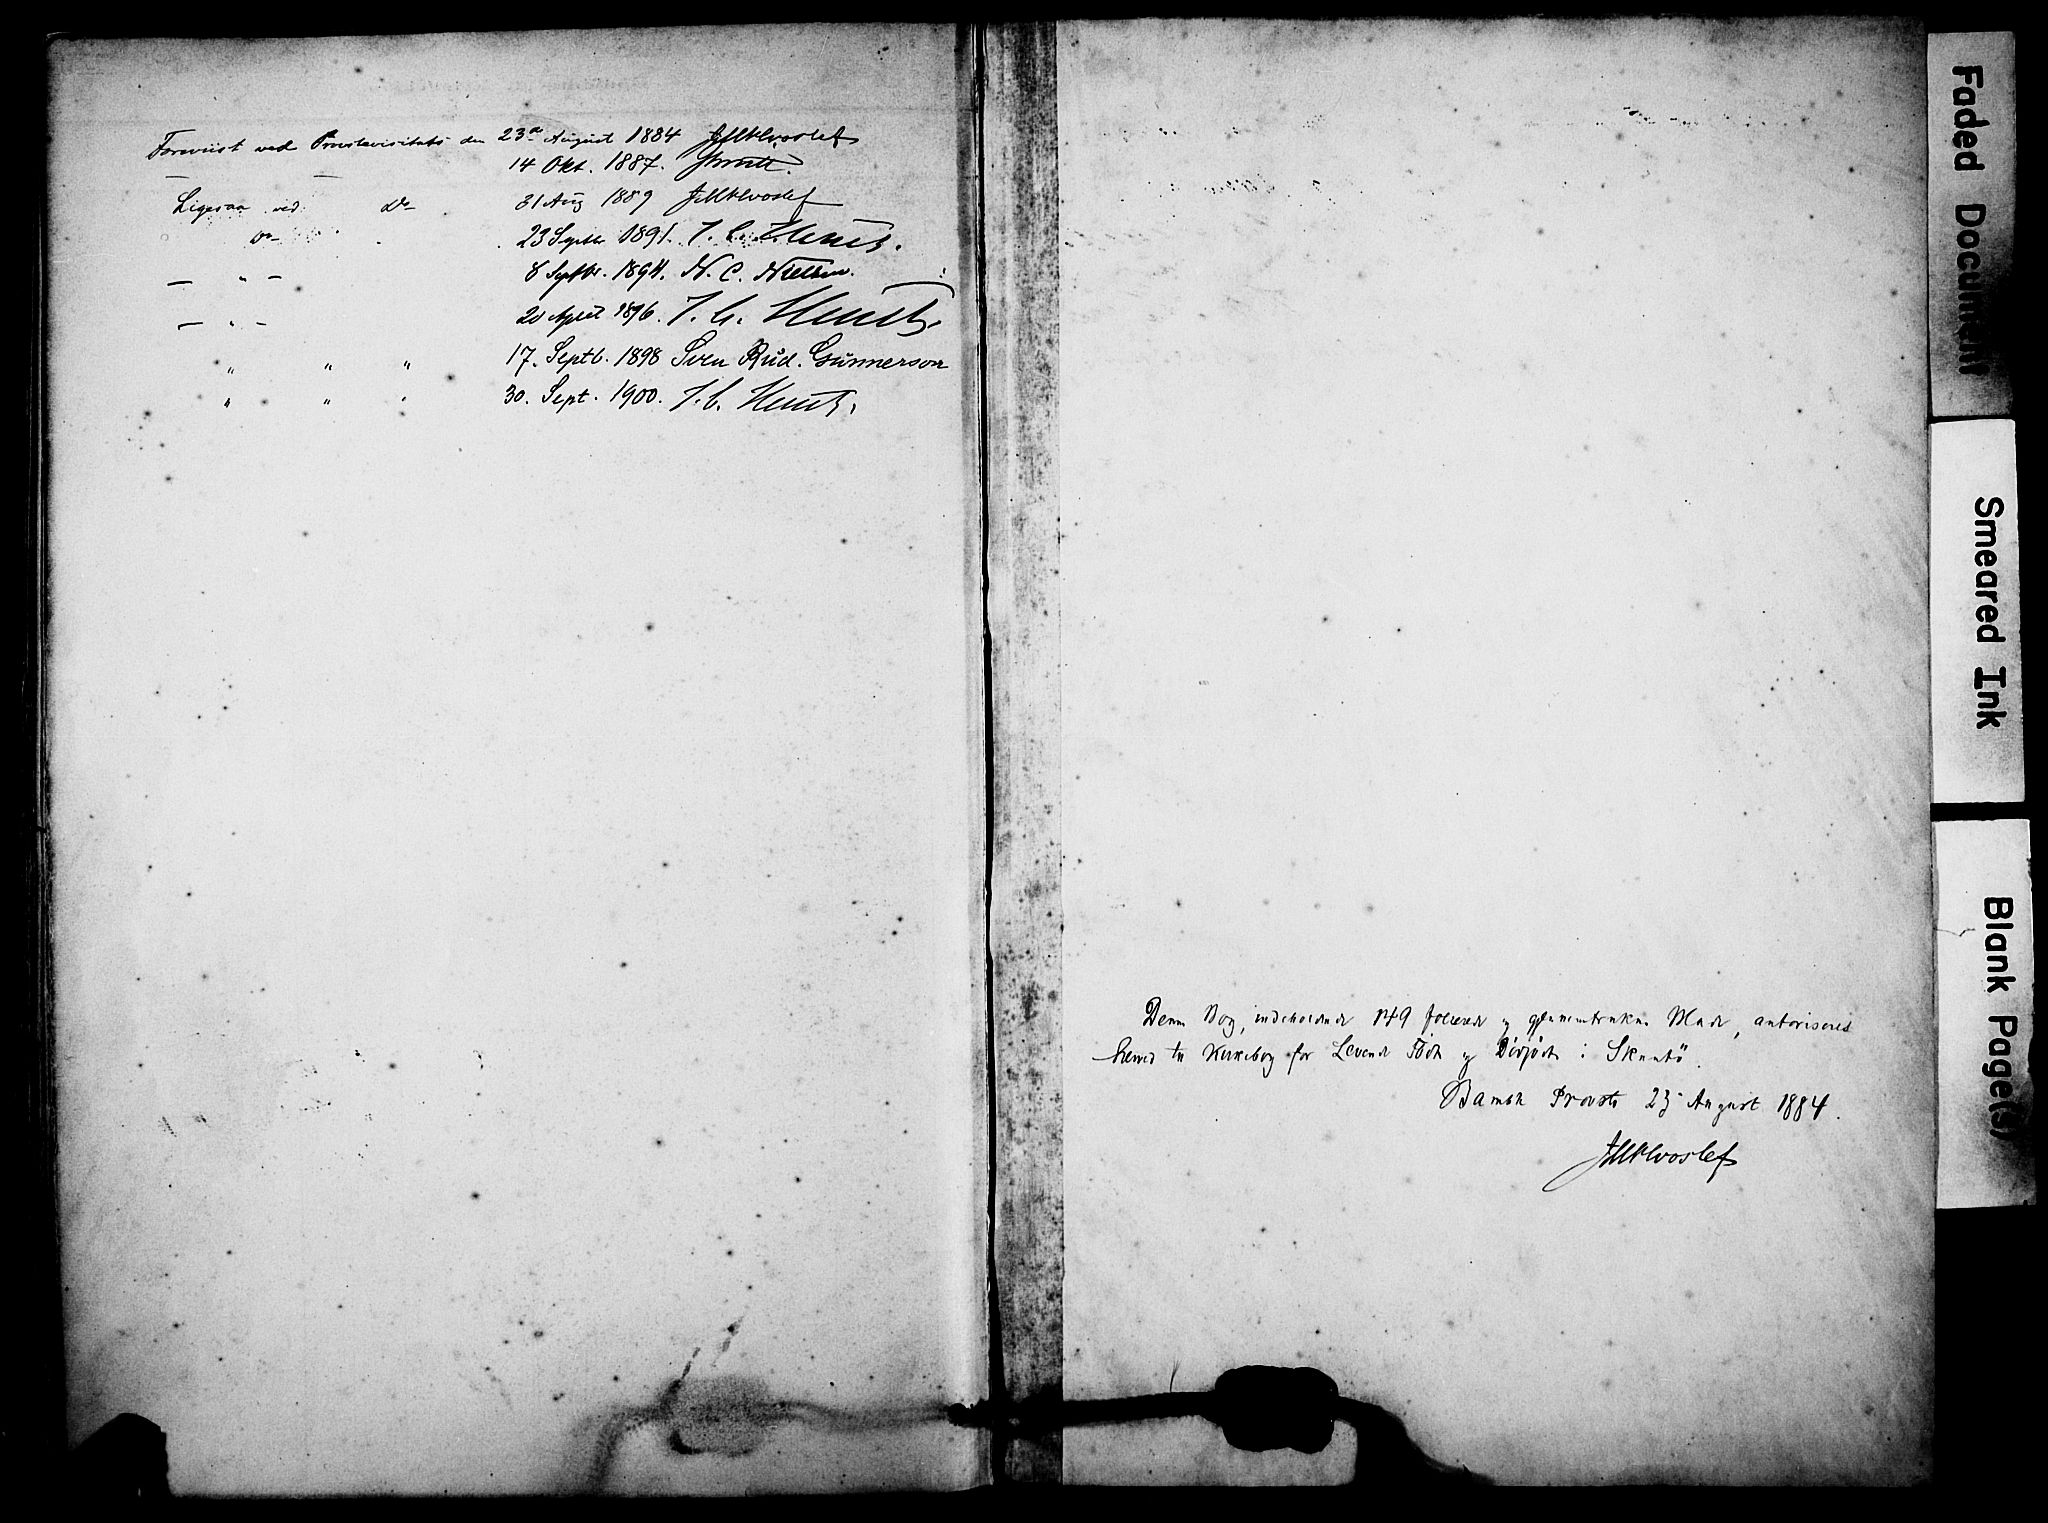 Foreviist ved Provstevisitats den 23de August 1884 JMKvoslef
— — 14 Okt. 1887. Smith.
Ligesaa ved do 31 Aug 1889 JMKvoslef
do 23 Septbr 1891. J. C. Heuch.
— " — 8 Septbr. 1894. N. C. Nielsen.
— " — 20 April 1896. J. C. Heuch.
" " " 17. Septb. 1898 Sven Rud. Gunnerson
" " " 30. Sept. 1900. J. C. Heuch.
Denne Bog, indeholdende 149 folierede og gjennemtrukne Blade, autoriseres
herved til Kirkebog for Levende Fødte og Dødfødte i Skaatø.
Bamble Provsti 23 August 1884.
JMKvoslef
Faded Document
Smeared Ink
Blank Page(s)